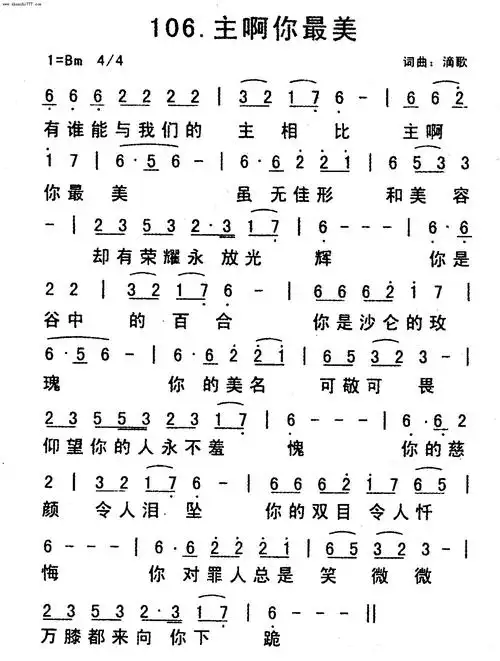 106.主啊你最美
1=Bm 4/4 词曲：滴歌
6 6 6 2 2 2 2 | 3 2 1 7 6 - | 6 6 2
有谁能与我们的 主相比 主啊
1 7 | 6 · 5 6 - | 6 · 6 2 2 1 | 6 5 3 3
你最美 虽无佳形 和美容
- | 2 3 5 3 2 · 3 1 7 | 6 - - - | 6 · 6
却有荣耀永放光 辉 你是
2 2 | 3 2 1 7 6 - | 6 6 6 2 1 7 |
谷中 的百合 你是沙仑的玫
6 · 5 6 - | 6 · 6 2 2 1 | 6 5 3 2 3 |
瑰 你的美名 可敬可畏
2 3 5 5 3 2 3 1 7 | 6 - - | 6 · 6
仰望你的人永不羞 愧 你的慈
2 | 3 2 1 7 6 - | 6 6 2 1 7 6 5 |
颜 令人泪坠 你的双目令人忏
6 - - - | 6 · 6 2 2 2 1 | 6 5 3 3 |
悔 你对罪人总是 笑微微
2 3 5 3 2 3 1 7 | 6 - - - ||
万膝都来向你下 跪